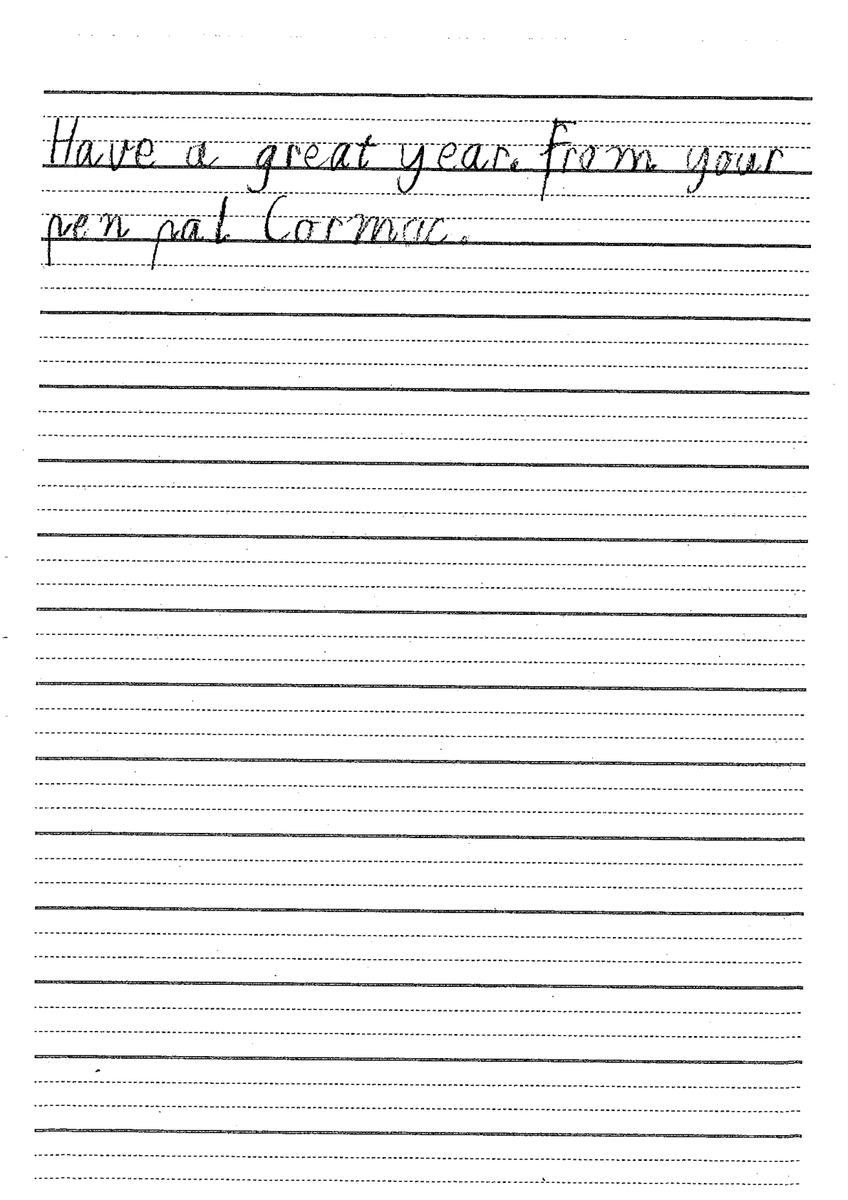 Have a great year. From your
pen pal Cormac.